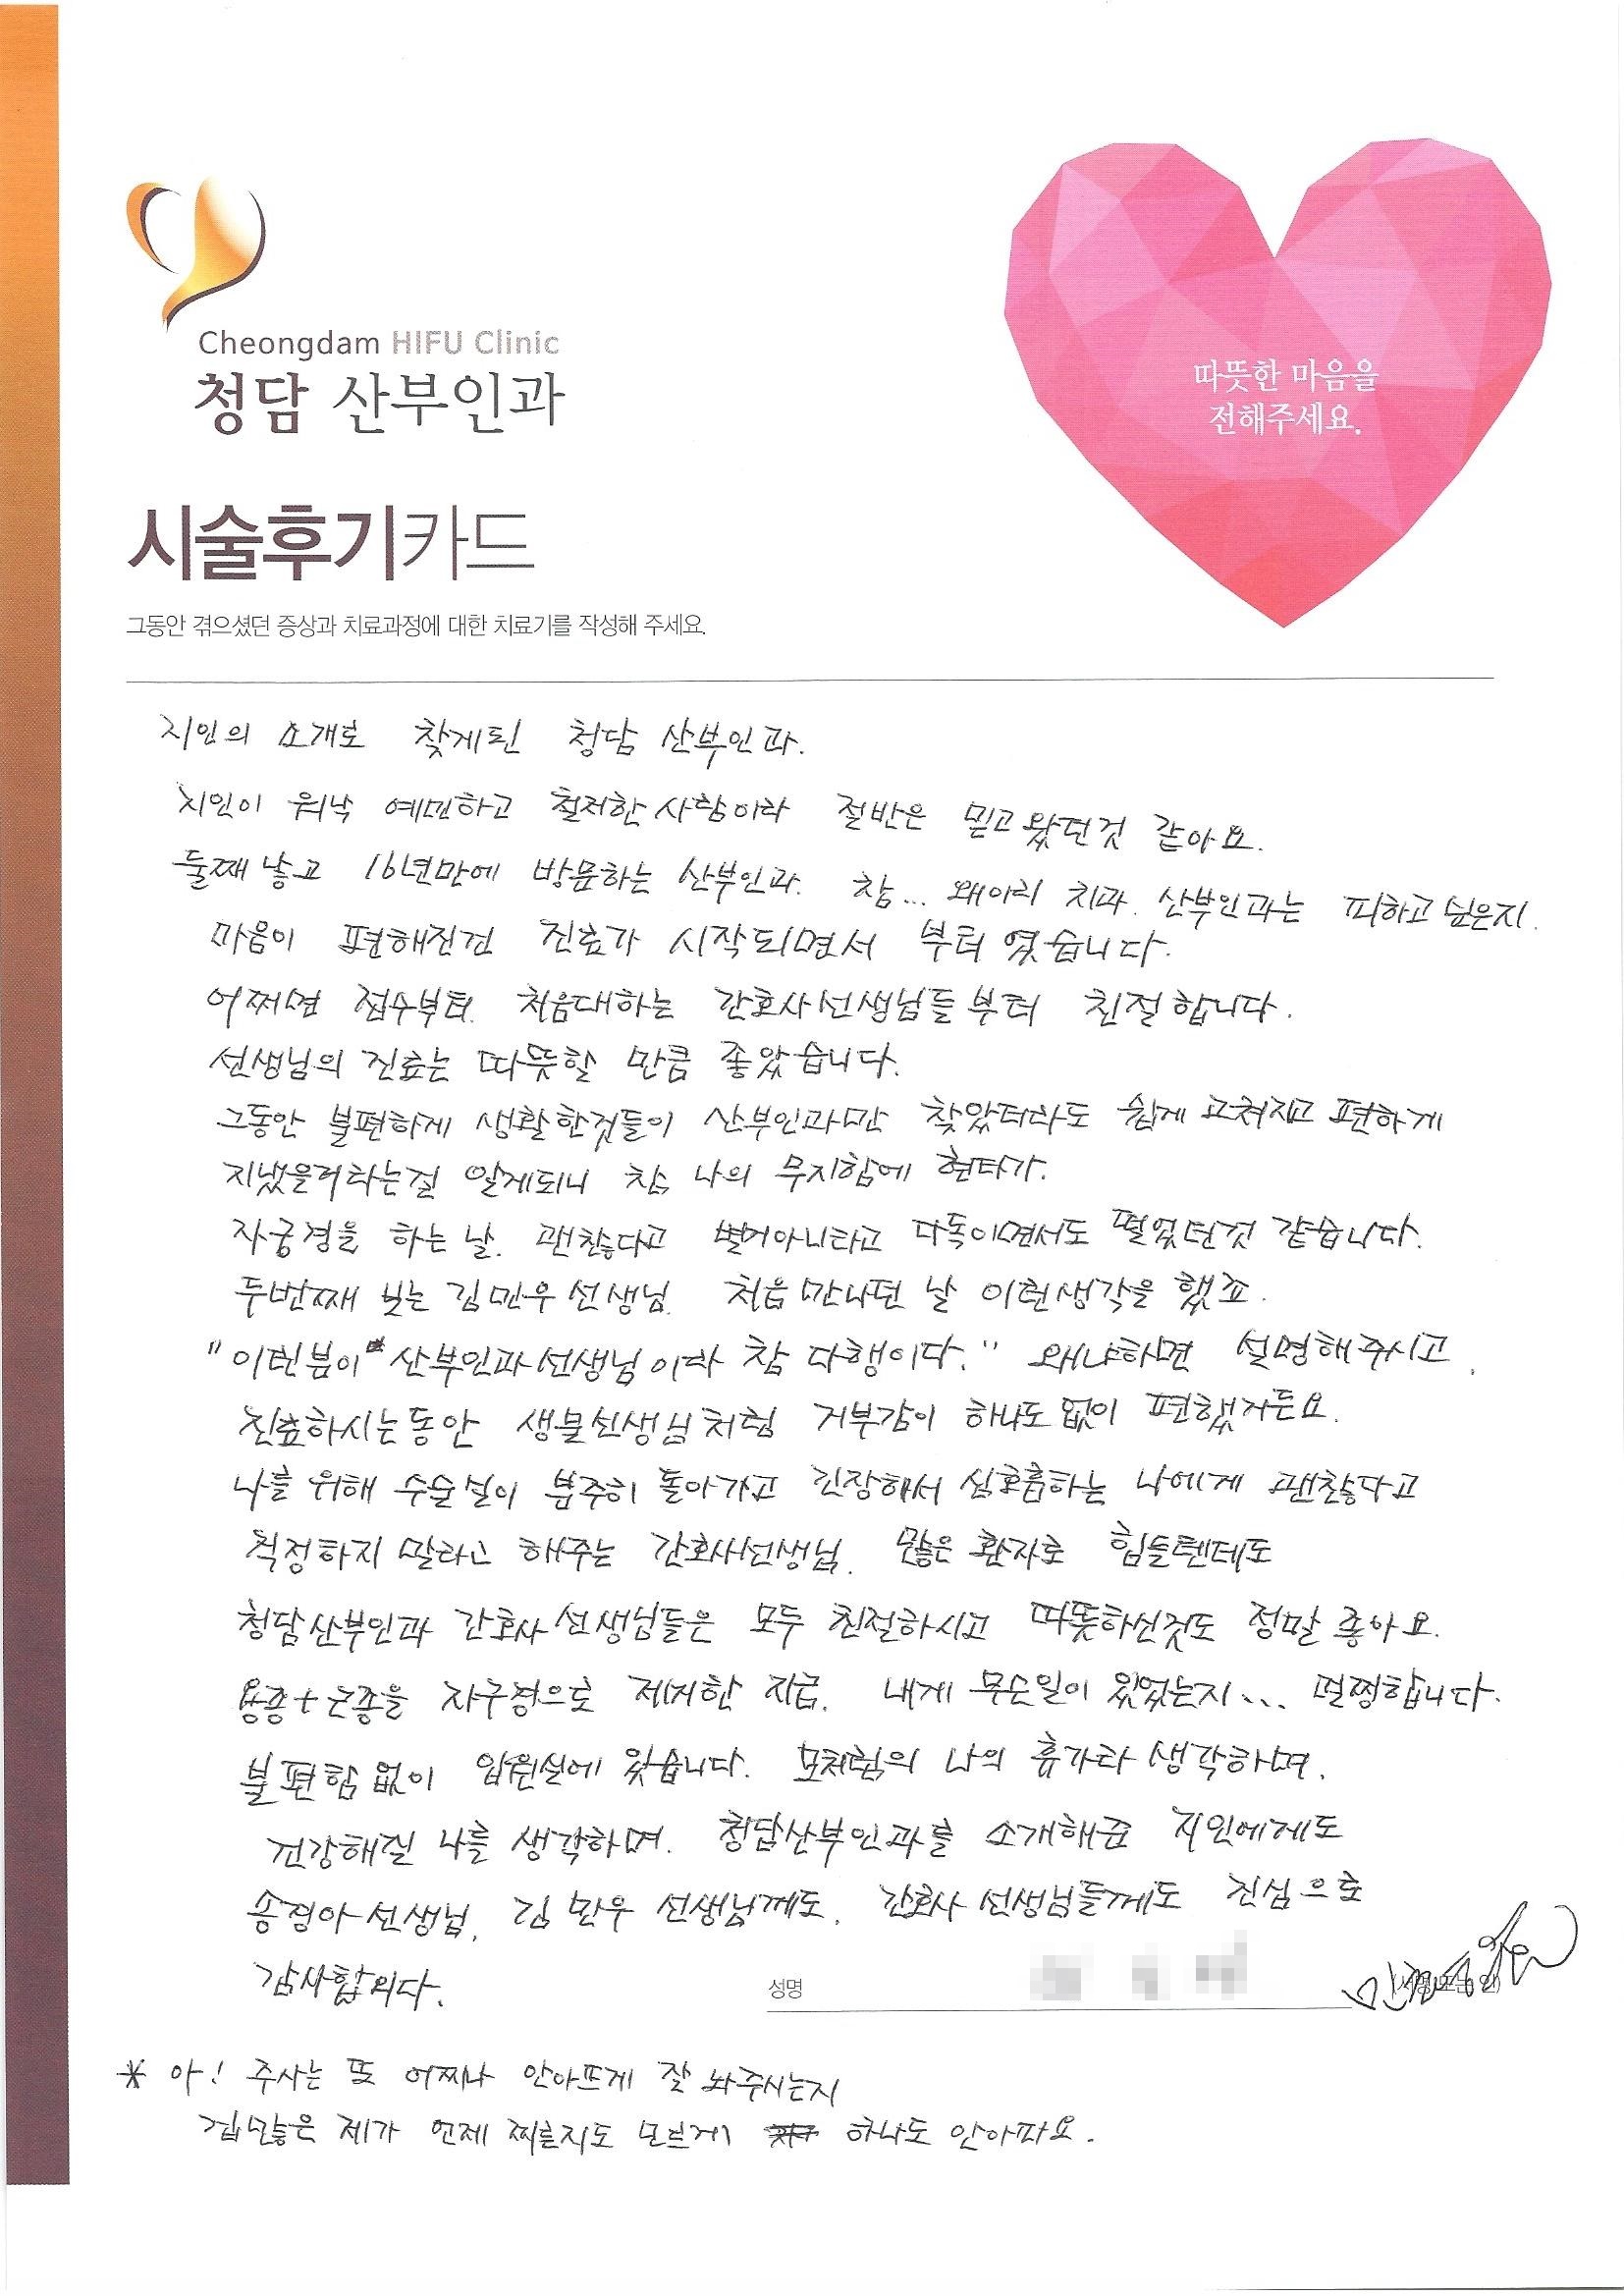 Cheongdam HIFU Clinic
청담 산부인과
따뜻한 마음을
전해주세요.
시술후기카드
그동안 겪으셨던 증상과 치료과정에 대한 치료기를 작성해 주세요.
지인의 소개로 찾게된 청담 산부인과.
지인이 워낙 예민하고 철저한 사람이라 절반은 믿고 왔던것 같아요.
둘째 낳고 16년만에 방문하는 산부인과. 참... 왜이리 치과, 산부인과는 피하고 싶은지.
마음이 편해진건 진료가 시작되면서 부터 였습니다.
어쩌면 접수부터. 처음대하는 간호사선생님들부터 친절합니다.
선생님의 진료는 따뜻할 만큼 좋았습니다.
그동안 불편하게 생활한것들이 산부인과만 찾았더라도 쉽게 고쳐지고 편하게
지냈을거라는걸 알게되니 참 나의 무지함에 현타가.
자궁경을 하는 날. 괜찮다고 별거아니라고 다독이면서도 떨었던것 같습니다.
두번째 뵙는 김민우 선생님. 처음 만나던 날 이런생각을 했죠.
"이런분이 산부인과선생님이라 참 다행이다." 왜냐하면 설명해주시고,
진료하시는동안 생물선생님처럼 거부감이 하나도 없이 편했거든요.
나를 위해 수술실이 분주히 돌아가고 긴장해서 심호흡하는 나에게 괜찮다고
걱정하지 말라고 해주는 간호사선생님. 많은 환자로 힘들텐데도
청담산부인과 간호사 선생님들은 모두 친절하시고 따뜻하신것도 정말 좋아요.
용종+근종을 자궁경으로 제거한 지금. 내게 무슨일이 있었는지... 멀쩡합니다.
불편함 없이 입원실에 있습니다. 모처럼의 나의 휴가라 생각하며.
건강해질 나를 생각하며. 청담산부인과를 소개해준 지인에게도
송경아 선생님, 김민우 선생님께도, 간호사 선생님들께도 진심으로
감사합니다.
성명
* 아! 주사는 또 어찌나 안아프게 잘 놔주시는지
겁많은 제가 언제 찌른지도 모르게 하나도 안아파요.